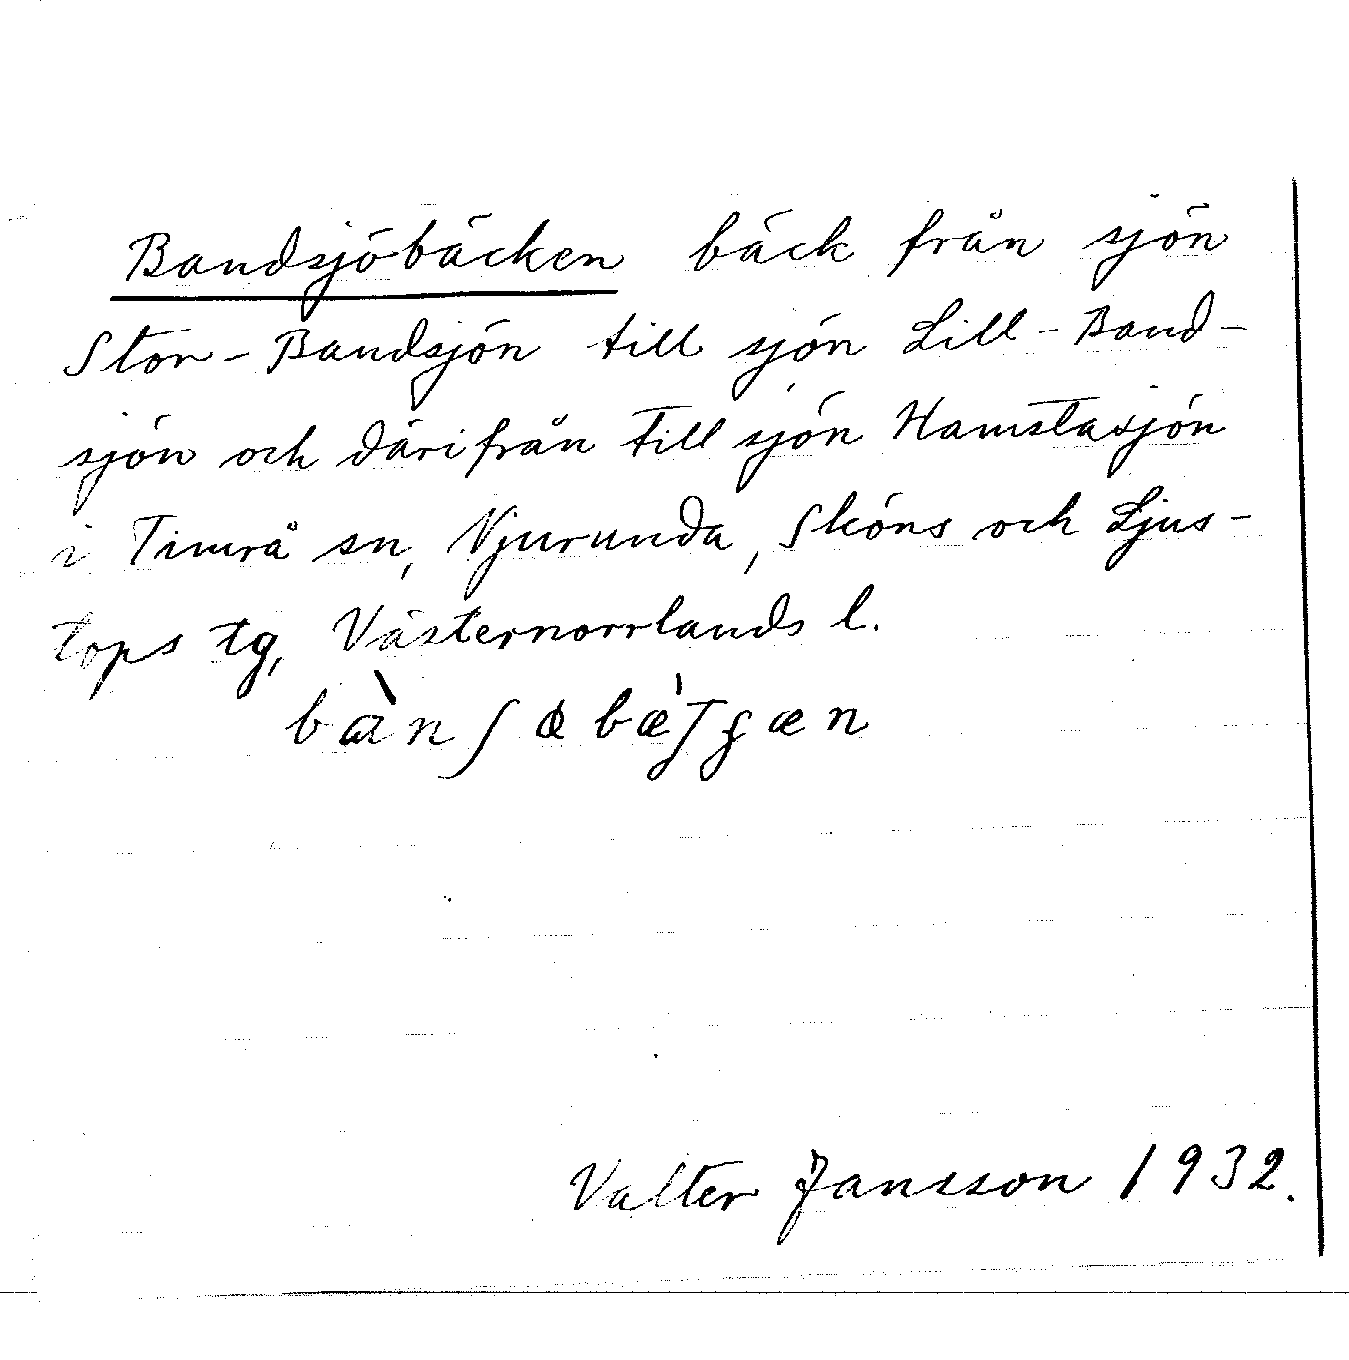 Bandsjöbäcken bäck från sjön
Stor-Bandsjön till sjön Lill-Band-
sjön och därifrån till sjön Hamstasjön
i Timrå sn, Njurunda, Sköns och Ljus-
tops tg, Västernorrlands l.
Valter Jansson 1932.